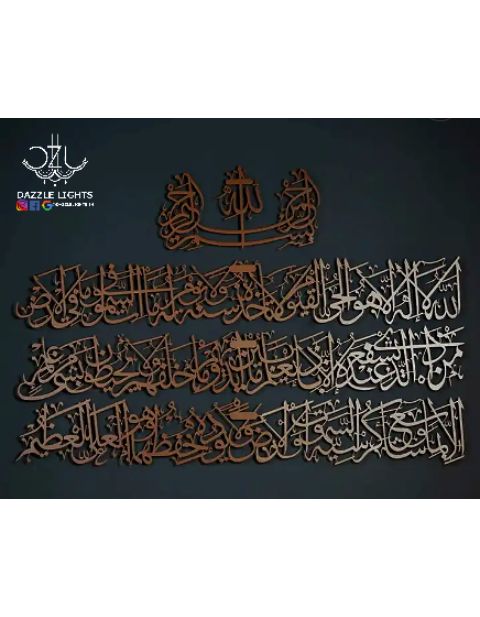 DAZZLE LIGHTS
بسم الله الرحمن الرحيم
الله لا إله إلا هو الحي القيوم لا تأخذه سنة ولا نوم له ما في السموات وما في الأرض
من ذا الذي يشفع عنده إلا بإذنه يعلم ما بين أيديهم وما خلفهم ولا يحيطون بشيء من علمه
إلا بما شاء وسع كرسيه السموات والأرض ولا يؤده حفظهما وهو العلي العظيم